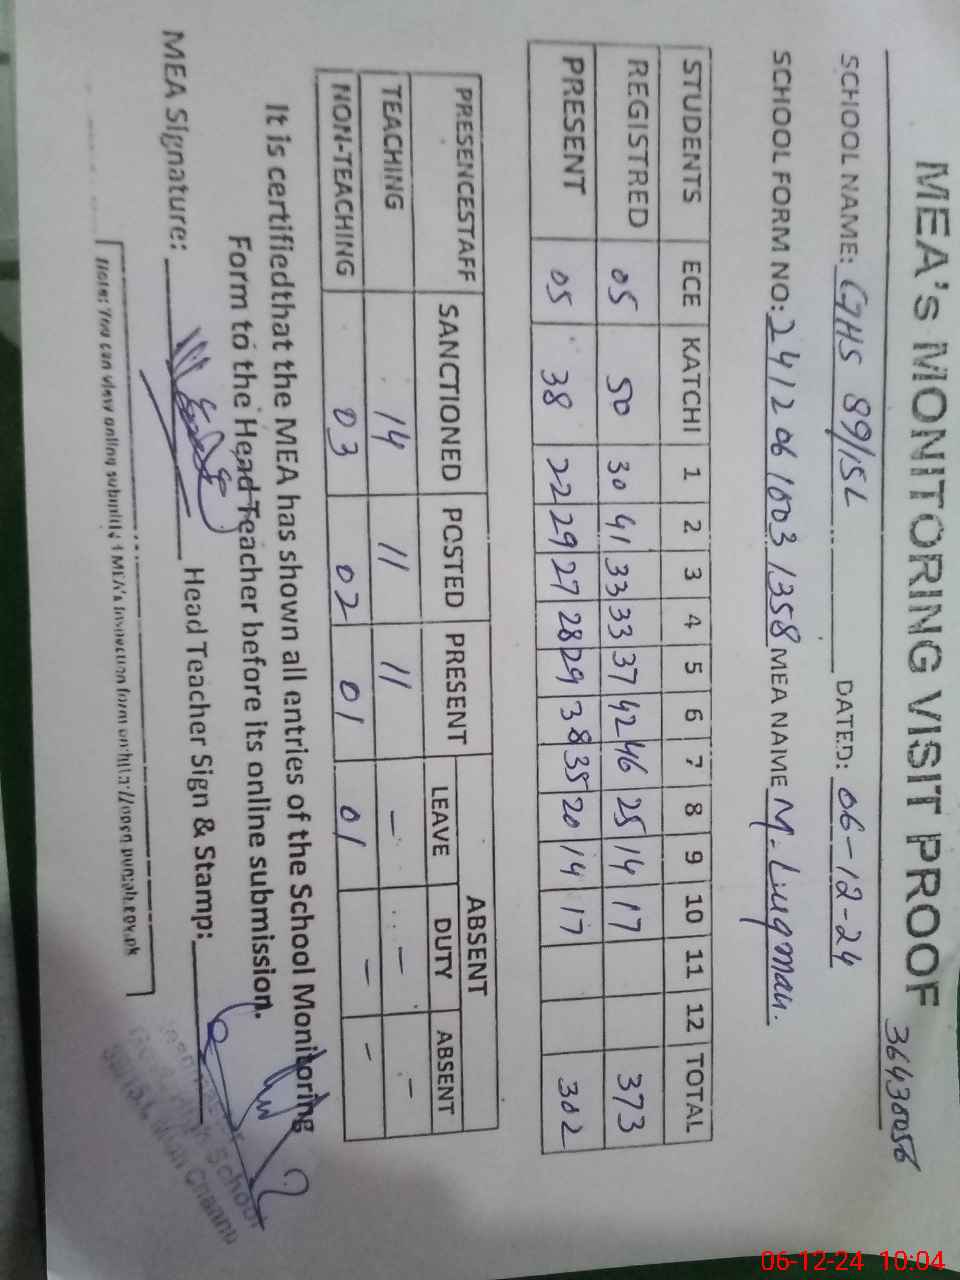 MEA's MONITORING VISIT PROOF 36430056
SCHOOL NAME: GHS 89/15L DATED: 06-12-24
SCHOOL FORM NO: 24120610031358 MEA NAME M. Luqman.
STUDENTS ECE KATCHI 1 2 3 4 5 6 7 8 9 10 11 12 TOTAL
REGISTRED 05 50 30 41 33 33 37 42 46 25 14 17 373
PRESENT 05 38 22 29 27 28 29 38 35 20 14 17 302
PRESENCESTAFF SANCTIONED POSTED PRESENT ABSENT
LEAVE DUTY ABSENT
TEACHING 14 11 11 - - -
NON-TEACHING 03 02 01 01 - -
It is certifiedthat the MEA has shown all entries of the School Monitoring
Form to the Head Teacher before its online submission.
MEA Signature: Head Teacher Sign & Stamp:
Note: You can view online submitted MEA's Inspection form on http://open.punjab.gov.pk
School
Mian Channu
06-12-24 10:04